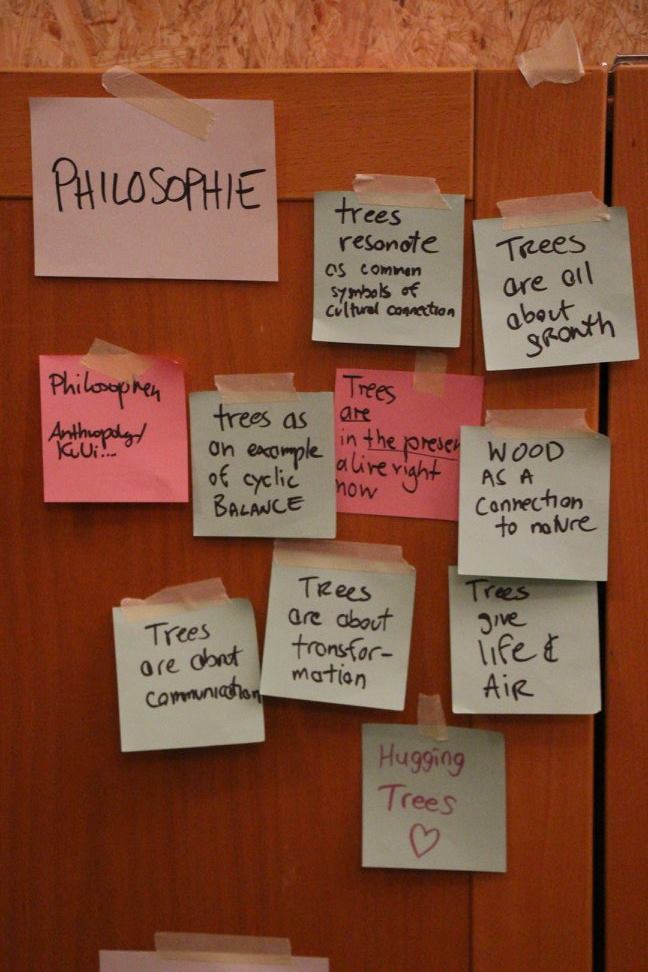 PHILOSOPHIE
trees
resonate
as common
symbols of
cultural connection
Trees
are all
about
growth
Philosophen
Anthropology/
KiWi...
trees as
an example
of cyclic
BALANCE
Trees
are
in the presen
alive right
now
WOOD
AS A
Connection
to nature
Trees
are about
communication
Trees
are about
transfor-
mation
Trees
give
life &
AIR
Hugging
Trees